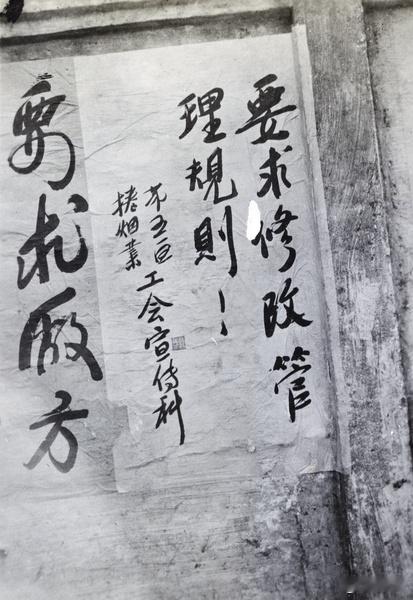 要求修改管
理規則！
㐧五区
捲烟業
工会宣傳科
要求厰方